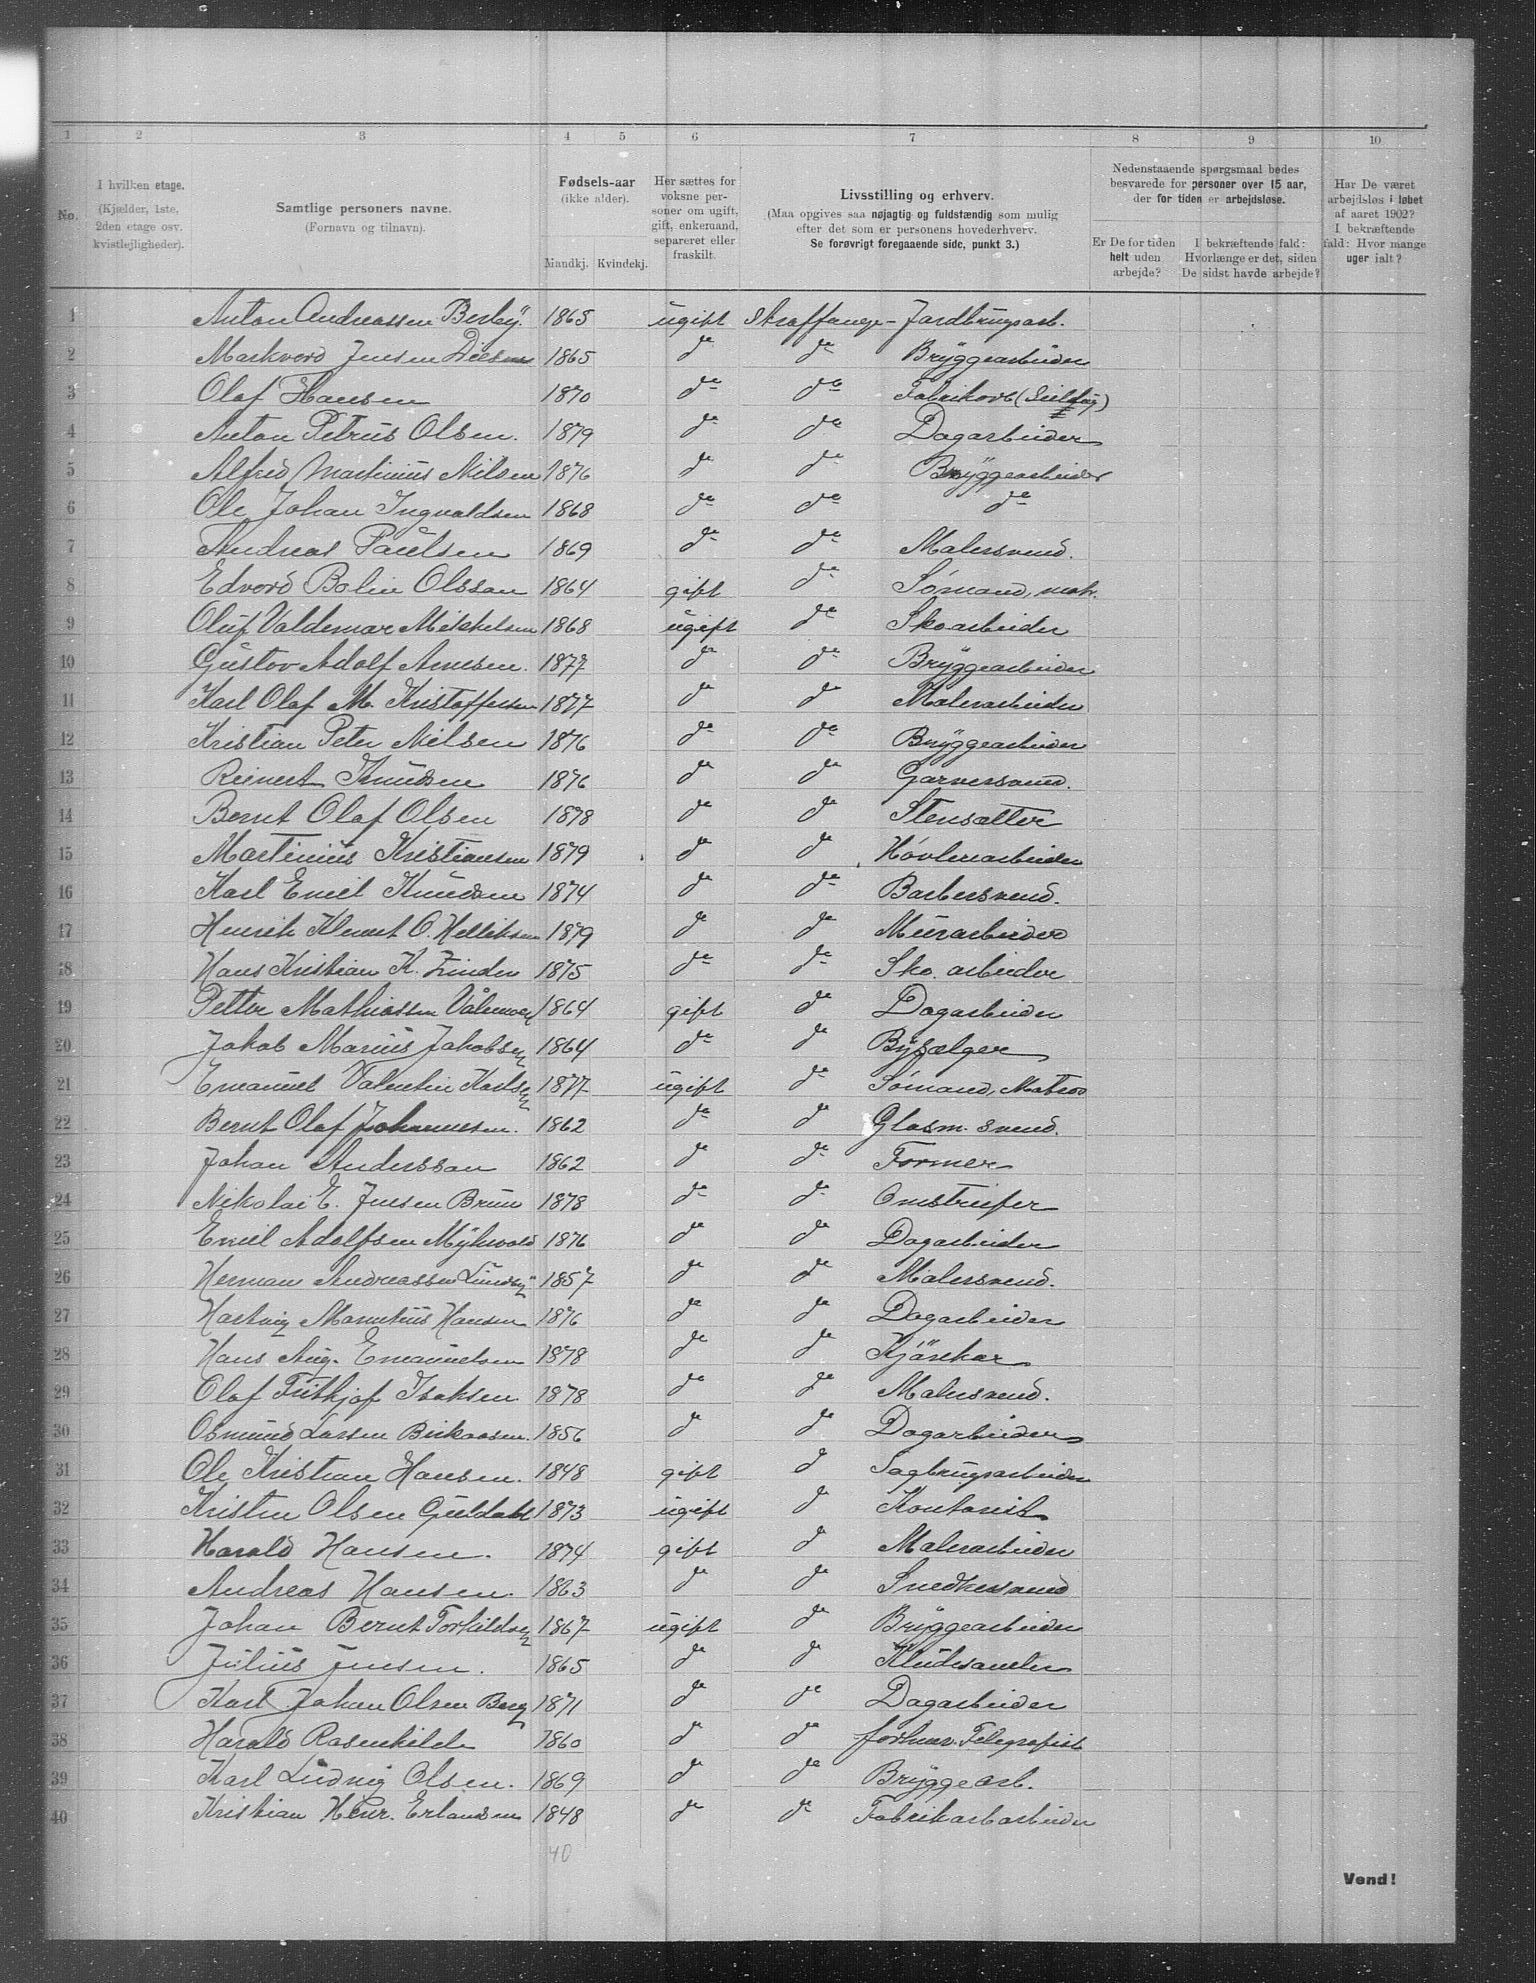 1 2 3 4 5 6 7 8 9 10
No.
I hvilken etage.
(Kjælder, 1ste,
2den etage osv.
kvistlejligheder).
Samtlige personers navne.
(Fornavn og tilnavn).
Fødsels-aar
(ikke alder).
Mandkj. Kvindekj.
Her sættes for
voksne per-
soner om ugift,
gift, enkemand,
separeret eller
fraskilt.
Livsstilling og erhverv.
(Maa opgives saa nøjagtig og fuldstændig som mulig
efter det som er personens hovederhverv.
Se forøvrigt foregaaende side, punkt 3.)
Nedenstaaende spørgsmaal bedes
besvarede for personer over 15 aar,
der for tiden er arbejdsløse.
Er De for tiden
helt uden
arbejde?
I bekræftende fald:
Hvorlænge er det, siden
De sidst havde arbejde?
Har De været
arbejdsløs i løbet
af aaret 1902?
I bekræftende
fald: Hvor mange
uger ialt?
1 Anton Andreassen Berby 1865 ugift Straffange - Jordbrugsarb.
2 Markvord Jensen 1865 do do Bryggearbeider
3 Olaf Hansen 1870 do do Fabrikarb
4 Anton Petrus Olsen. 1879 do do Dagarbeider
5 Alfred Martinius Nilsen 1876 do do Bryggearbeider
6 Ole Johan Ingvaldsen 1868 do do do
7 Andreas Paulsen 1869 do do Malersvend.
8 Edvard Bolin Olsson 1864 gift do Sømand, mat.
9 Oluf Valdemar Mikkelsen 1868 ugift do Skoarbeider
10 Gustav Adolf Arnesen. 1877 do do Bryggearbeider
11 Karl Olaf M. Kristoffersen 1877 do do Malerarbeider
12 Kristian Peter Nilsen 1876 do do Bryggearbeider
13 Reinert Knudsen 1876 do do Garversvend.
14 Bernt Olaf Olsen 1878 do do Stensætter
15 Martinius Kristiansen 1879 do do Høvleriarbeider
16 Karl Emil Knudsen 1874 do do Barbersvend.
17 Henrik Klemet O. Helliksen 1879 do do Murarbeider
18 Hans Kristian K. Linder 1875 do do Sko. arbeider
19 Petter Mathiassen 1864 gift do Dagarbeider
20 Jakob Marius Jakobsen 1864 do do Bysælger
21 Emanuel Valentin Karlsen 1877 ugift do Sømand, Matros
22 Bernt Olaf Johannesen. 1862 do do Glasm. svend.
23 Johan Andersson 1862 do do Former
24 Nikolai E. Jensen Brun 1878 do do Omstreifer
25 Emil Adolfsen Myhrvold 1876 do do Dagarbeider
26 Herman Andreassen Lundby 1857 do do Malersvend.
27 Hartvig Marentius Hansen 1876 do do Dagarbeider
28 Hans Aug. Emanuelsen 1878 do do Kjørekar
29 Olaf Frithjof Isaksen 1878 do do Malersvend.
30 Osmund Larsen 1856 do do Dagarbeider
31 Ole Kristian Hansen. 1848 gift do Sagbrugsarbeider
32 Kristen Olsen Guldahl 1873 ugift do Kontorist
33 Harald Hansen. 1874 gift do Malerarbeider
34 Andreas Hansen. 1863 do do Snedkersvend
35 Johan Bernt Torkildsen 1867 ugift do Bryggearbeider
36 Julius Jensen. 1865 do do Kludesamler
37 Karl Johan Olsen Berg 1871 do do Dagarbeider
38 Harald Rosenkilde 1860 do do forhenv. Telegrafist
39 Karl Ludvig Olsen. 1869 do do Bryggearb.
40 Kristian Henr. Erlandsen 1848 do do Fabrikarbarbeider
40
Vend!